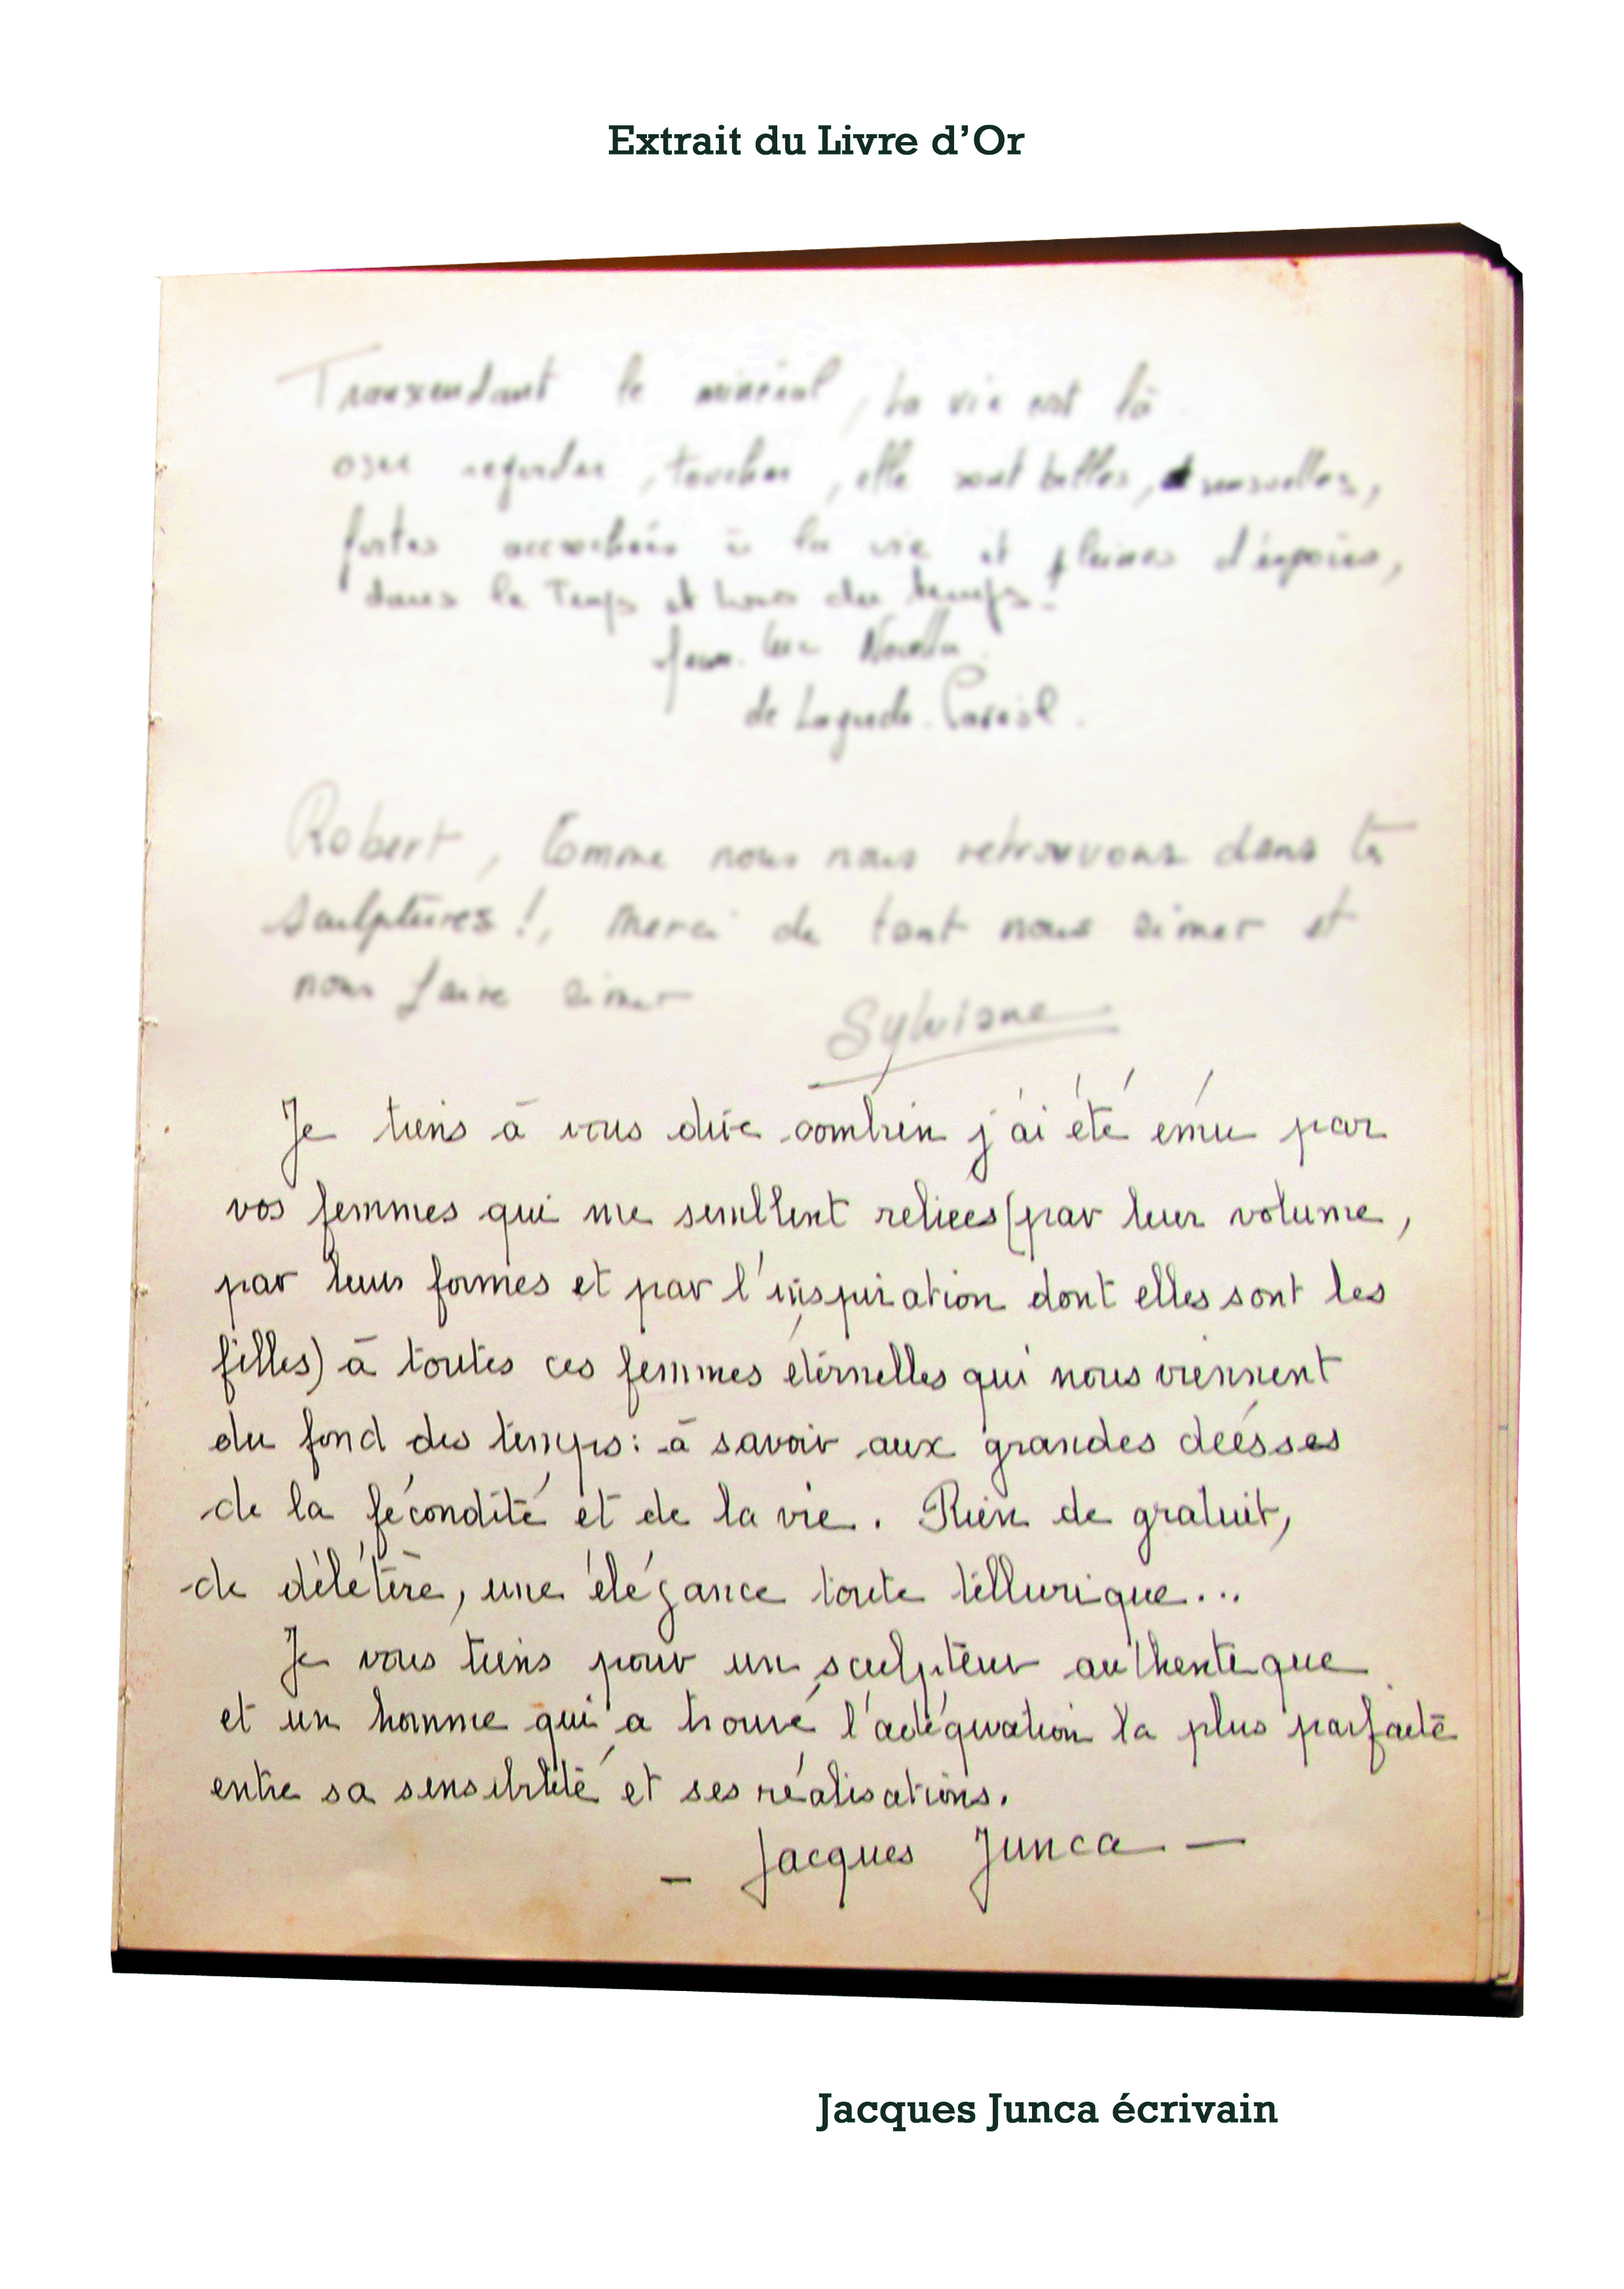 Extrait du Livre d'Or
Transcendant le minéral, la vie est là
oser regarder, toucher, elle sont belles, sensuelles,
fortes accrochées à la vie et pleines d'espoirs,
dans le Temps et hors du temps.
Jean. Luc
de
Robert, Comme nous nous retrouvons dans tes
sculptures!, Merci de tant nous aimer et
nous faire aimer
Sylviane
Je tiens à vous dire combien j'ai été ému par
vos femmes qui me semblent reliées (par leur volume,
par leurs formes et par l'inspiration dont elles sont les
filles) à toutes ces femmes éternelles qui nous viennent
du fond des temps: à savoir aux grandes déesses
de la fécondité et de la vie. Rien de gratuit,
de délétère, une élégance toute tellurique...
Je vous tiens pour un sculpteur authentique
et un homme qui a trouvé l'adéquation la plus parfaite
entre sa sensibilité et ses réalisations.
- Jacques Junca -
Jacques Junca écrivain